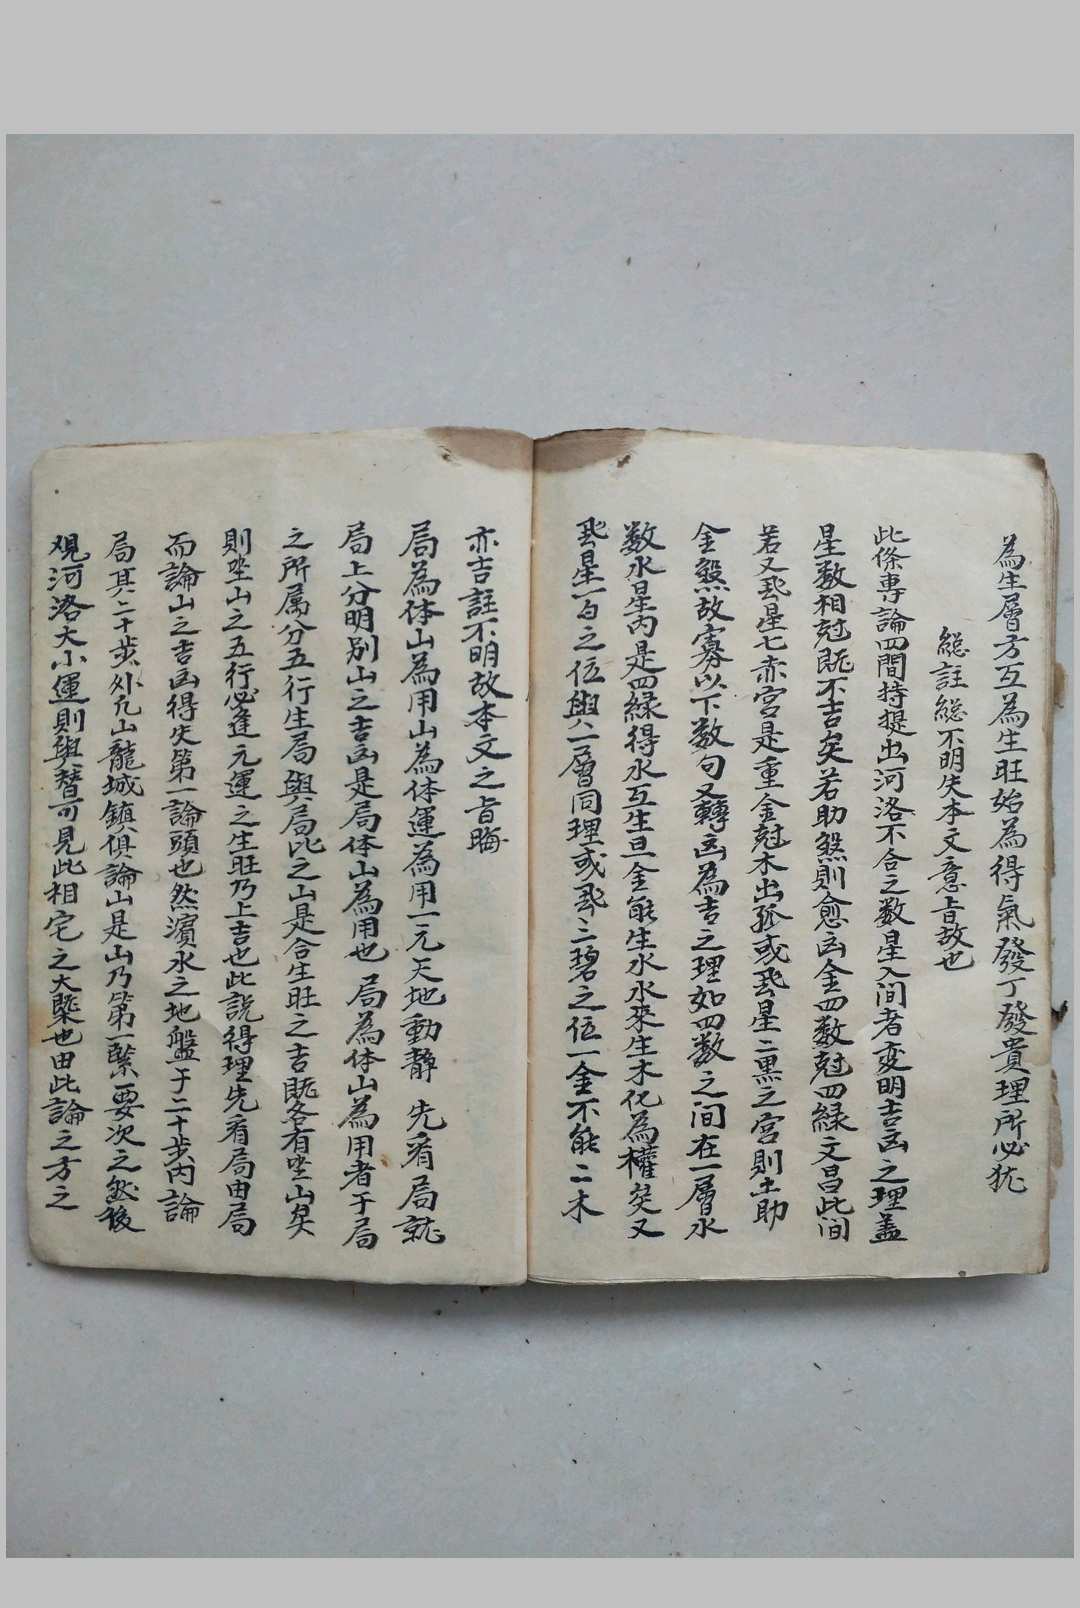 為生層方互為生旺始為得氣發丁發貴理所必犹
総註総不明失本文意旨故也
此條專論四間持提出河洛不合之数星入间者变明吉凶之理盖
星数相尅既不吉矣若助煞則愈凶金四数尅四緑文昌此间
若又飛星七赤宫是重金尅木出孤或飛星二黒之宫則土助
金煞故寡以下数句又轉凶為吉之理如四数之间在一層水
数水星丙是四緑得水互生旦金能生水水來生木化為權矣又
飛星一白之位與一層同理或飛三碧之位一金不能二木
亦吉註不明故本文之旨晦
局為体山為用山為体運為用一元天地動静 先看局就
局上分明别山之吉凶是局体山為用也 局為体山為用者于局
之所属分五行生局與局比之山是合生旺之吉既各有坐山矣
則坐山之五行必逢元運之生旺乃上吉也此説得理先看局由局
而論山之吉凶得失第一論頭也然濱水之地盤于二十步内論
局其二十步外凢山龍城鎮俱論山是山乃第一緊要次之然後
观河洛大小運則與替可見此相宅之大槩也由此論之方之